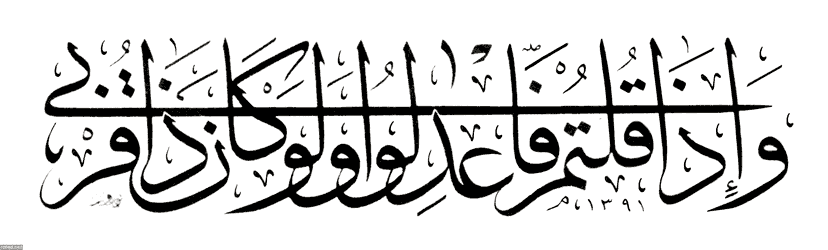 وَإِذَا قُلْتُمْ فَاعْدِلُوا وَلَوْ كَانَ ذَا قُرْبَى
١٣٩١م